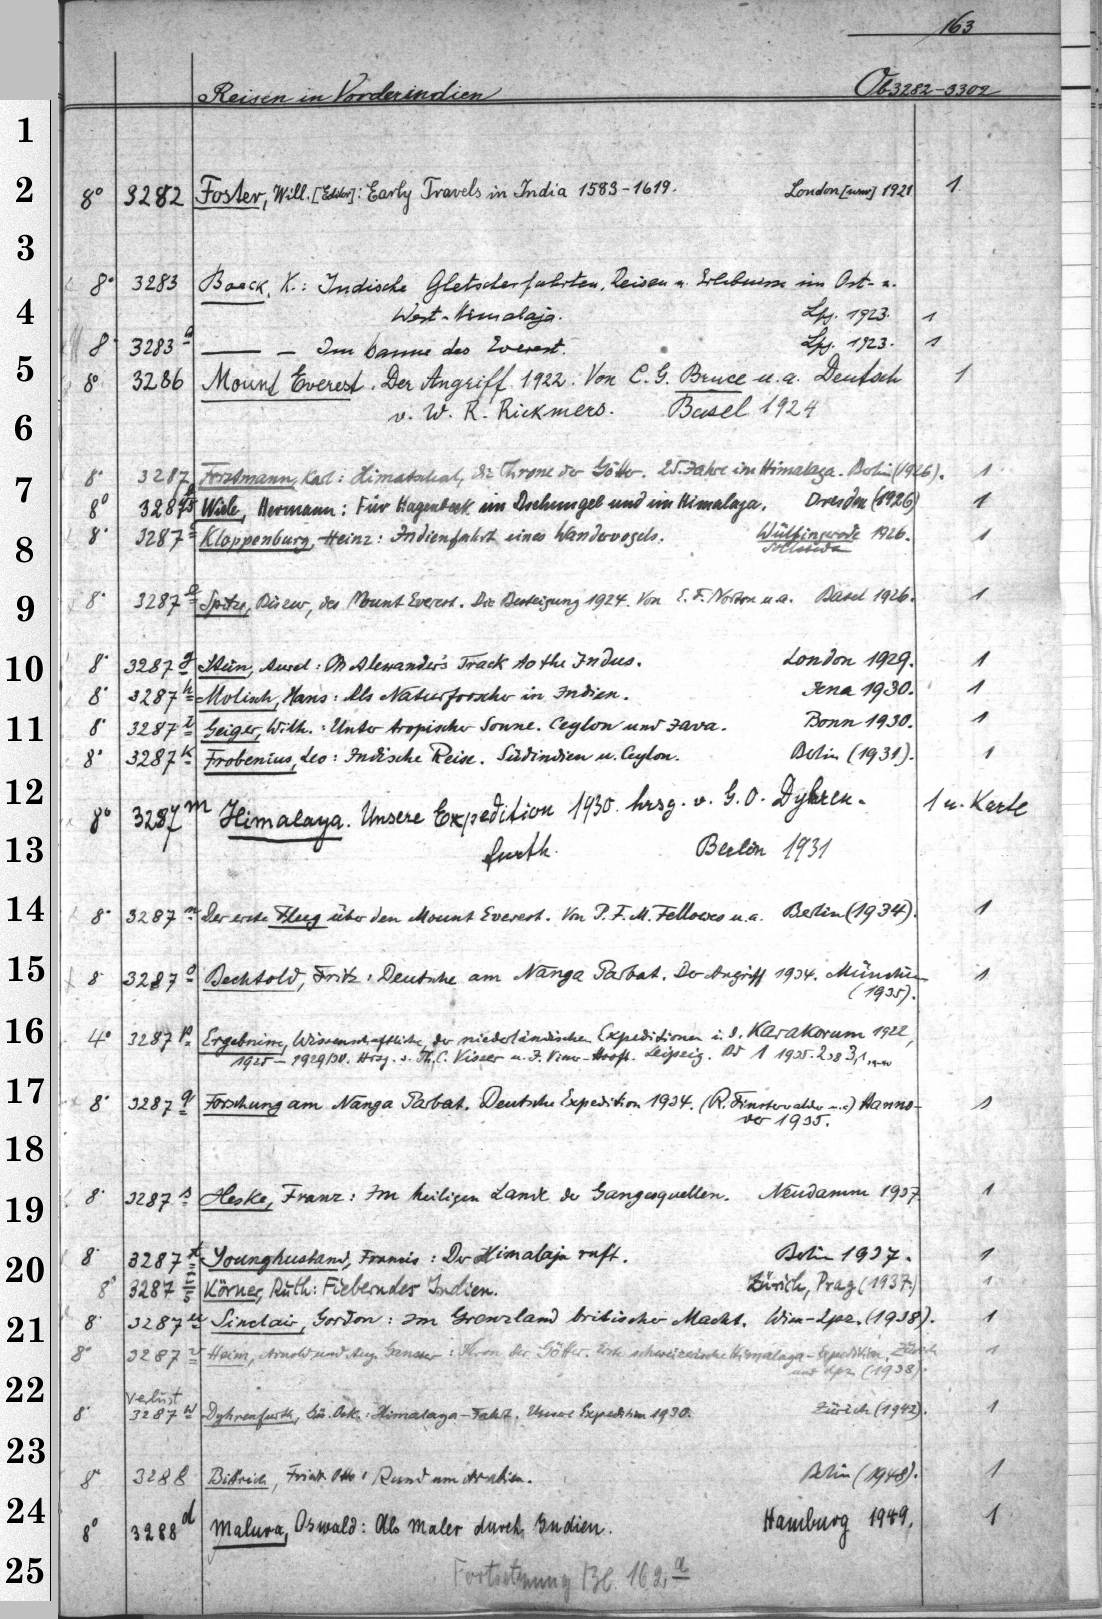 163
Reisen in Vorderindien Ob 3282-3302
1
2 8° 3282 Foster, Will. [Editor]: Early Travels in India 1583-1619. London [usw] 1921 1
3 8° 3283 Boeck, K.: Indische Gletscherfahrten, Reisen u. Erlebnisse im Ost- u.
4 West-Himalaja. Lpz. 1923. 1
8° 3283 a — — Im banne des Everest. Lpz. 1923. 1
5 8° 3286 Mount Everest. Der Angriff 1922. Von C. G. Bruce u. a. Deutsch 1
6 v. W. R. Rickmers. Basel 1924
8° 3287 Forstmann, Karl: Himatschal, die Throne der Götter. 25 Jahre im Himalaya. Berlin (1926). 1
7 8° 3287 b Wiele, Hermann: Für Hagenbeck im Dschungel und im Himalaya. Dresden (1926) 1
8 8° 3287 c Kloppenburg, Heinz: Indienfahrt eines Wandervogels. Wülfingerode 1926. 1
Sollstedt
9 8° 3287 e Spitze, Die, des Mount Everest. Die Besteigung 1924. Von E. F. Norton u. a. Basel 1926. 1
10 8° 3287 g Stein, Aurel: On Alexander's Track to the Indus. London 1929. 1
8° 3287 h Molisch, Hans: Als Naturforscher in Indien. Jena 1930. 1
11 8° 3287 i Geiger, Wilh.: Unter tropischer Sonne. Ceylon und Java. Bonn 1930. 1
8° 3287 k Frobenius, Leo: Indische Reise. Südindien u. Ceylon. Berlin (1931). 1
12 8° 3287 m Himalaya. Unsere Expedition 1930. hrsg. v. G. O. Dyhren- 1 u. Karte
13 furth. Berlin 1931
14 8° 3287 n Der erste Flug über den Mount Everest. Von P. F. M. Fellowes u. a. Berlin (1934). 1
15 8° 3287 o Bechtold, Fritz: Deutsche am Nanga Parbat. Der Angriff 1934. München 1
(1935).
16 4° 3287 p Ergebnisse, Wissenschaftliche, der niederländischen Expeditionen i. d. Karakorum 1922,
1925 - 1929/30. Hrsg. v. Ph. C. Visser u. J. Visser-Hooft. Leipzig. Bd 1 1935. 2,
17 8° 3287 q Forschung am Nanga Parbat. Deutsche Expedition 1934. (R. Finsterwalder u. a.) Hanno- 1
ver 1935.
18
19 8° 3287 s Heske, Franz: Im heiligen Lande der Gangesquellen. Neudamm 1937 1
20 8° 3287 t Younghusband, Francis: Der Himalaja ruft. Berlin 1937. 1
8° 3287 Körner, Ruth: Fieberndes Indien. Zürich, Prag (1937.) 1
21 8° 3287 u Sinclair, Gordon: Im Grenzland britischer Macht. Wien-Lpz. (1938). 1
8° 3287 v Heim, Arnold und Aug. Gansser: Thron der Götter. Erste schweizerische Himalaya-Expedition. Zürich 1
und Lpz (1938).
22 Verlust
8° 3287 w Dyhrenfurth, Gü. Osk.: Himalaya-Fahrt. Unsere Expedition 1930. Zürich (1942). 1
23 8° 3288 Bittrich, Friedr. Otto: Rund um Arabien. Berlin (1948). 1
24 8° 3288 d Malura, Oswald: Als Maler durch Indien. Hamburg 1949. 1
25 Fortsetzung Bl. 162 a